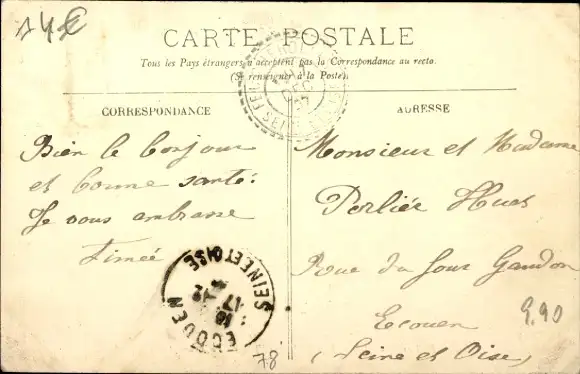 14€
CARTE POSTALE
Tous les Pays étrangers n'acceptent pas la Correspondance au recto.
(Se renseigner à la Poste).
CORRESPONDANCE
Bien le bonjour
et bonne santé.
Je vous embrasse
Aimée
ADRESSE
Monsieur et Madame
Perliée
Rue du Four
Ecouen
(Seine et Oise)
9.90
ECOUEN
SEINE ET OISE
17
78
DEC